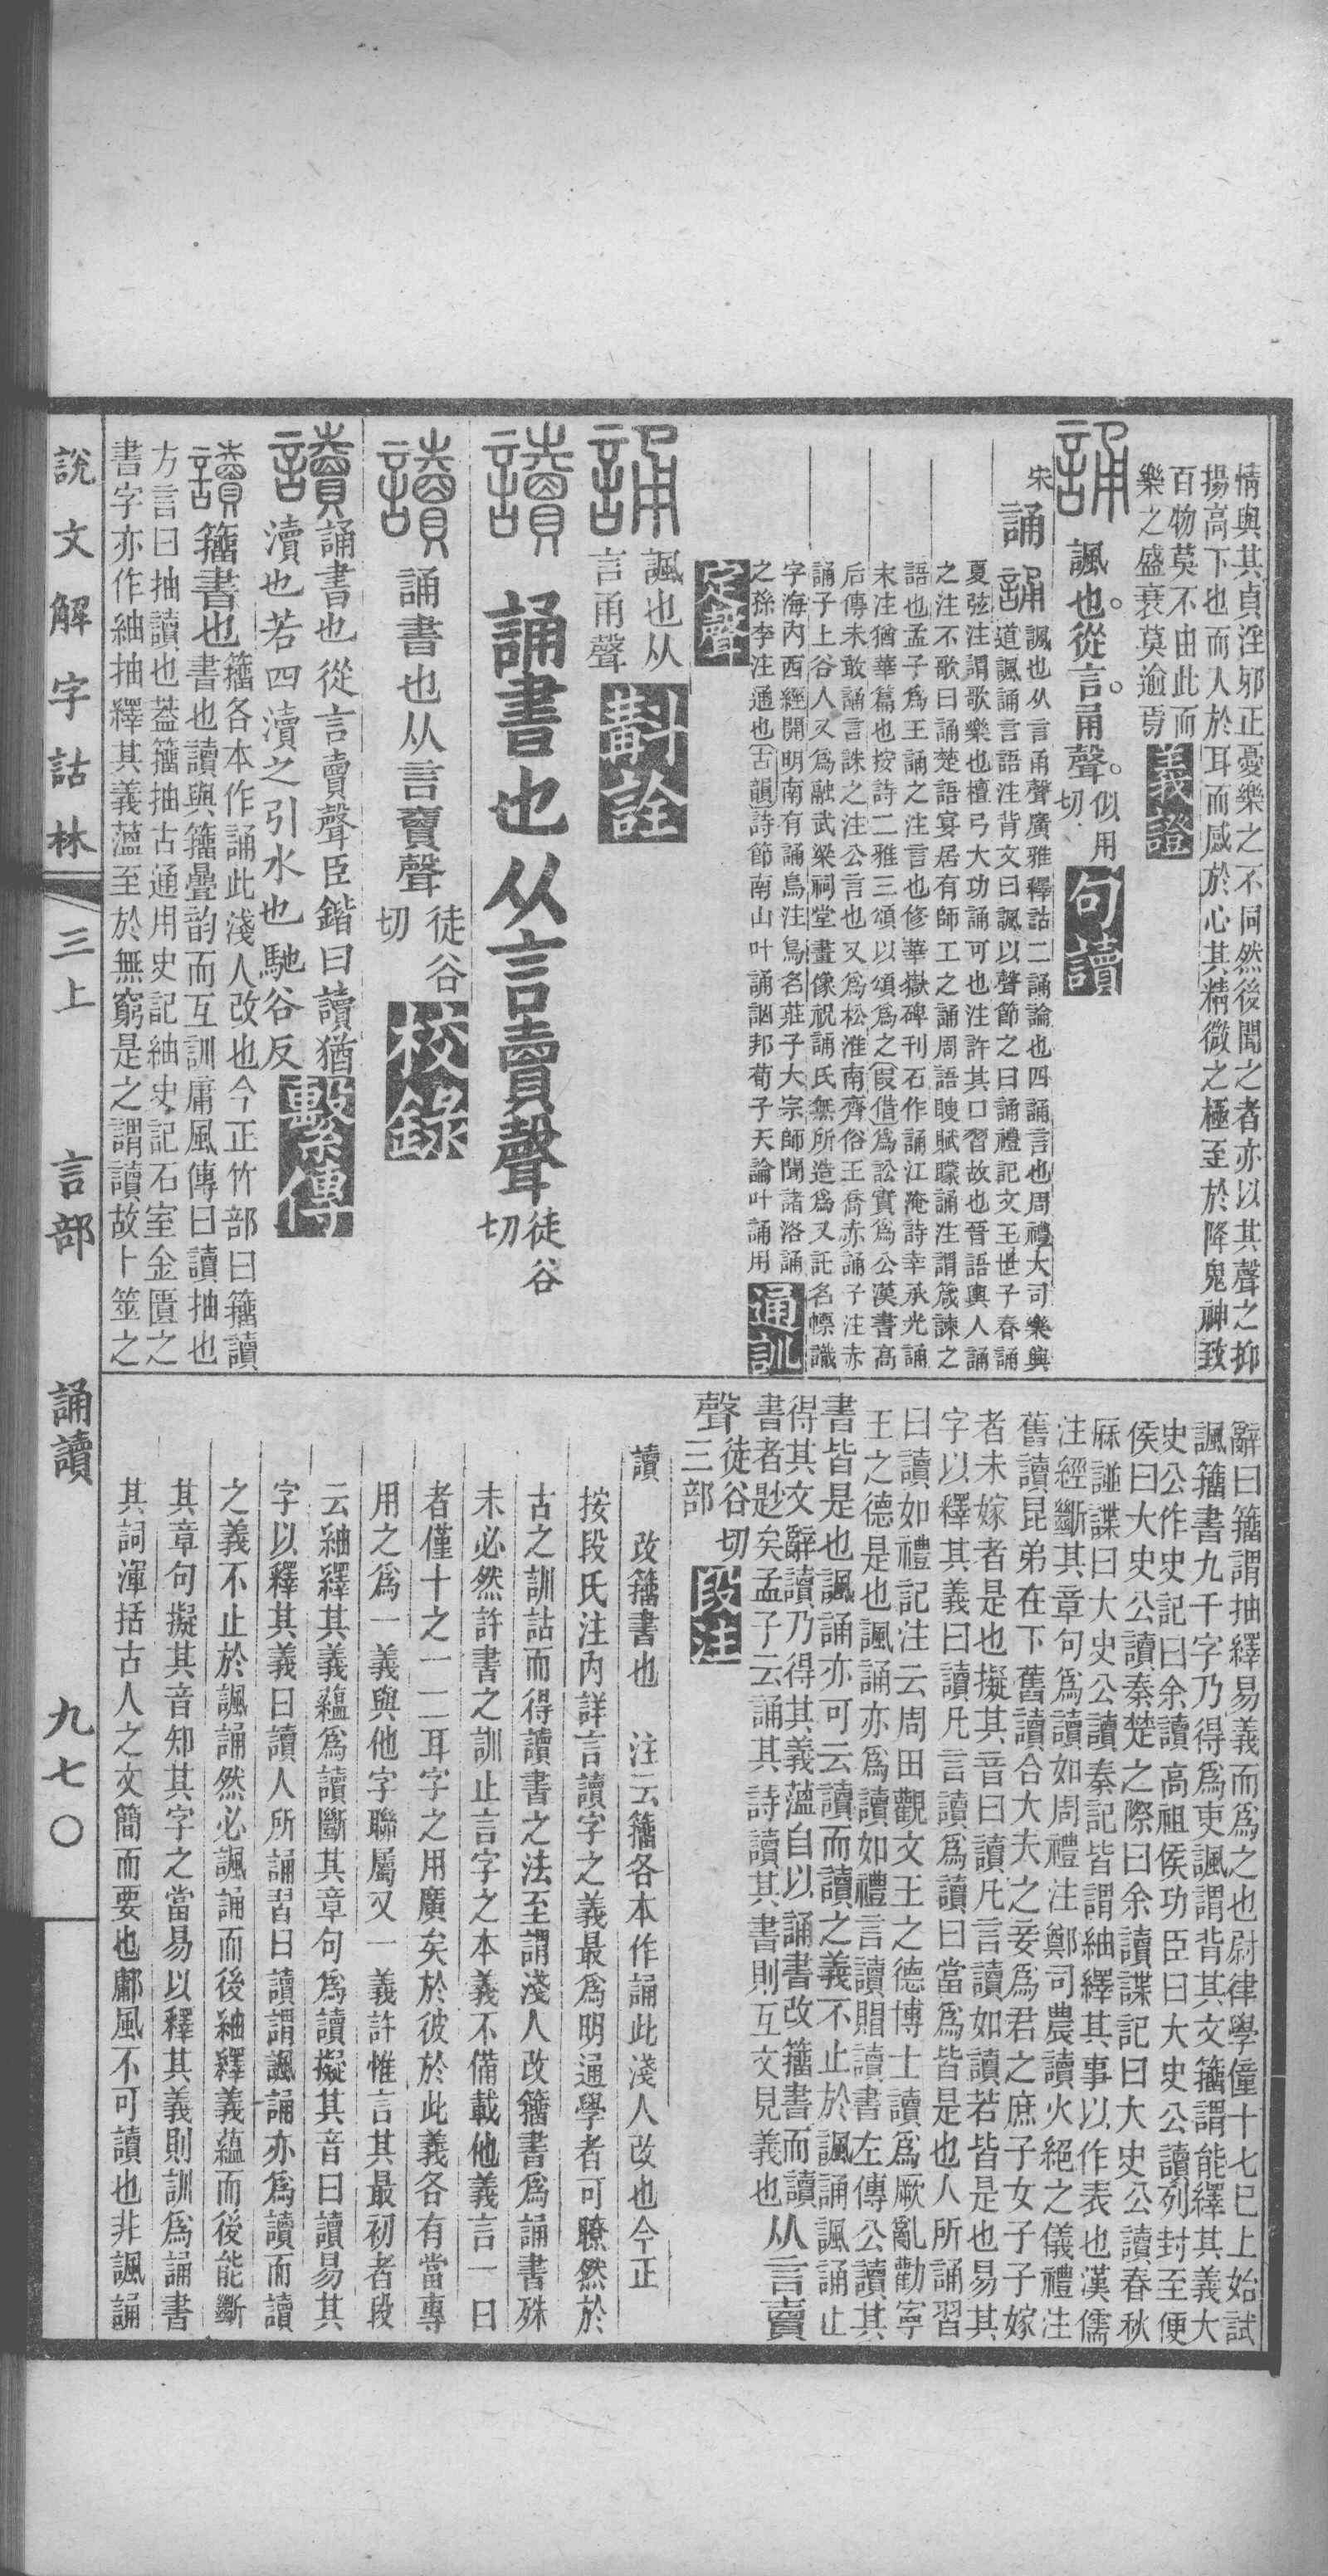 情與其貞淫邪正憂樂之不同然後聞之者亦以其聲之抑
揚高下也而人於耳而感於心其精微之極至於降鬼神致
百物莫不由此而
樂之盛衰莫逾焉
義證
誦
諷也從言甬聲
似用
切
句讀
宋
誦
諷也从言甬聲廣雅釋詁二誦論也四誦言也周禮大司樂興
道諷誦言語注背文曰諷以聲節之曰誦禮記文王世子春誦
夏弦注謂歌樂也檀弓大功誦可也注許其口習故也晉語輿人誦
之注不歌曰誦楚語宴居有師工之誦周語瞍賦矇誦注謂箴諫之
語也孟子爲王誦之注言也修華嶽碑刊石作誦江淹詩幸承光誦
末注猶華篇也按詩二雅三頌以頌爲之叚借爲訟實爲公漢書高
后傳未敢誦言誅之注公言也又爲松淮南齊俗王喬赤誦子注赤
誦子上谷人又爲融武梁祠堂畫像祝誦氏無所造爲又託名幖識
字海內西經開明南有誦鳥注鳥名莊子大宗師聞諸洛誦
之孫李注通也古韻詩節南山叶誦訩邦荀子天論叶誦用
通訓
定聲
誦
諷也从
言甬聲
斠詮
讀
誦書也从言賣聲
徒谷
切
讀
誦書也从言賣聲
徒谷
切
校錄
讀
誦書也從言賣聲臣鍇曰讀猶
瀆也若四瀆之引水也馳谷反
繫傳
讀
籒書也
籒各本作誦此淺人改也今正竹部曰籒讀
書也讀與籒疊韵而互訓庸風傳曰讀抽也
方言曰抽讀也葢籒抽古通用史記紬史記石室金匱之
書字亦作紬抽繹其義薀至於無窮是之謂讀故卜筮之
辭曰籒謂抽繹易義而爲之也尉律學僮十七已上始試
諷籒書九千字乃得爲吏諷謂背其文籒謂能繹其義大
史公作史記曰余讀高祖侯功臣曰大史公讀列封至便
侯曰大史公讀秦楚之際曰余讀諜記曰大史公讀春秋
厤譜諜曰大史公讀秦記皆謂紬繹其事以作表也漢儒
注經斷其章句爲讀如周禮注鄭司農讀火絕之儀禮注
舊讀昆弟在下舊讀合大夫之妾爲君之庶子女子子嫁
者未嫁者是也擬其音曰讀凡言讀如讀若皆是也易其
字以釋其義曰讀凡言讀爲讀曰當爲皆是也人所誦習
曰讀如禮記注云周田觀文王之德博士讀爲厥亂勸寧
王之德是也諷誦亦爲讀如禮言讀賵讀書左傳公讀其
書皆是也諷誦亦可云讀而讀之義不止於諷誦諷誦止
得其文辭讀乃得其義薀自以誦書改籒書而讀
書者尟矣孟子云誦其詩讀其書則互文見義也
从言賣
聲
徒谷切
三部
段注
讀　改籒書也　注云籒各本作誦此淺人改也今正
按段氏注內詳言讀字之義最爲明通學者可瞭然於
古之訓詁而得讀書之法至謂淺人改籒書爲誦書殊
未必然許書之訓止言字之本義不備載他義言一曰
者僅十之一二耳字之用廣矣於彼於此義各有當專
用之爲一義與他字聯屬又一義許惟言其最初者段
云紬繹其義蘊爲讀斷其章句爲讀擬其音曰讀易其
字以釋其義曰讀人所誦習曰讀謂諷誦亦爲讀而讀
之義不止於諷誦然必諷誦而後紬繹義蘊而後能斷
其章句擬其音知其字之當易以釋其義則訓爲誦書
其詞渾括古人之文簡而要也鄘風不可讀也非諷誦
說文解字詁林
三上
言部
誦讀
九七〇